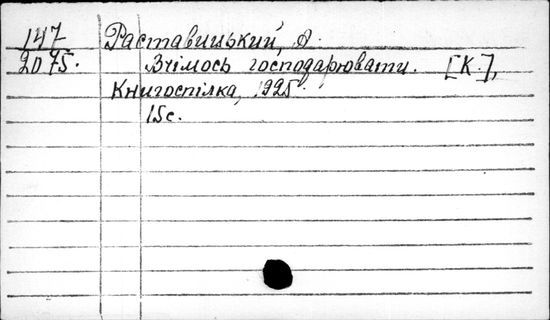 147 Раставицький, А.
2075. Вчімось господарювати. [К.],
Книгоспілка, 1925.
15с.